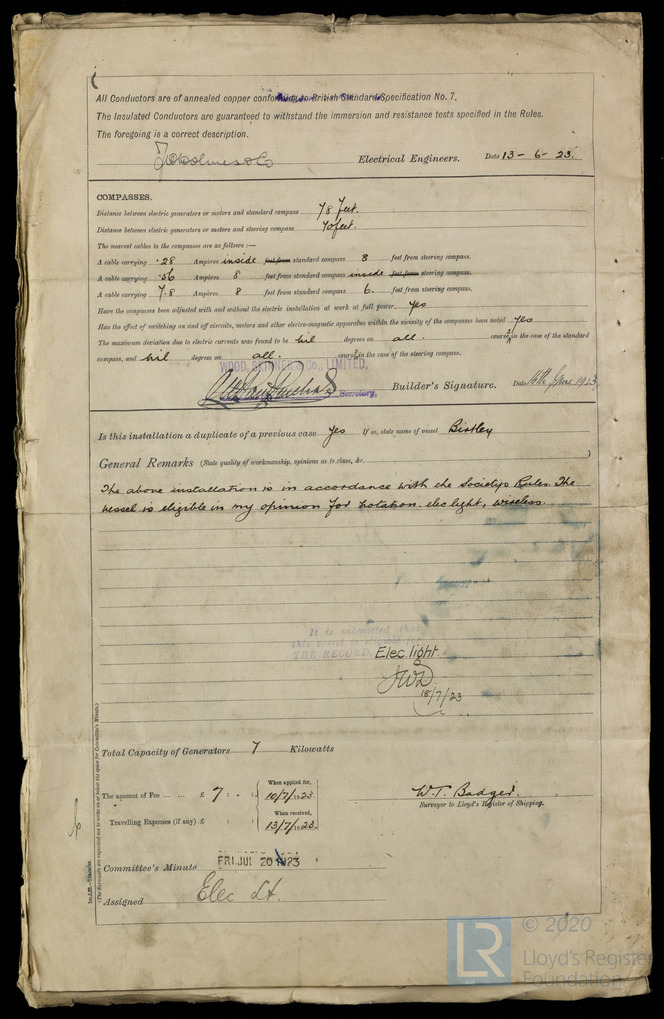 All Conductors are of annealed copper conforming to British Standard Specification No. 7.
The Insulated Conductors are guaranteed to withstand the immersion and resistance tests specified in the Rules.
The foregoing is a correct description.
Electrical Engineers. Date 13 - 6 - 23.
COMPASSES.
Distance between electric generators or motors and standard compass 78 feet.
Distance between electric generators or motors and steering compass 70 feet.
The nearest cables to the compasses are as follows :—
A cable carrying .28 Ampères inside feet from standard compass 8 feet from steering compass.
A cable carrying .56 Ampères 8 feet from standard compass inside feet from steering compass.
A cable carrying 7.8 Ampères 8 feet from standard compass 6. feet from steering compass.
Have the compasses been adjusted with and without the electric installation at work at full power. Yes
Has the effect of switching on and off circuits, motors and other electro-magnetic apparatus within the vicinity of the compasses been noted yes
The maximum deviation due to electric currents was found to be nil degrees on all. courses in the case of the standard
compass, and nil degrees on all. courses in the case of the steering compass.
WOOD, SKINNER & Co., LIMITED,
Secretary. Builder's Signature. Date 16th June 1923
Is this installation a duplicate of a previous case yes If so, state name of vessel Birtley
General Remarks (State quality of workmanship, opinions as to class, &c.
The above installation is in accordance with the Society's Rules. The
vessel is eligible in my opinion for notation. elec light, wireless.
It is submitted that
this vessel is eligible for
THE RECORD. Elec. light.
JWD
18/7/23
Total Capacity of Generators 7 Kilowatts
The amount of Fee ... ... £ 7 : - : When applied for, 10/7/1923.
W.T. Badger.
Surveyor to Lloyd's Register of Shipping.
Travelling Expenses (if any) £ : : When received, 13/7/1923.
Committee's Minute FRI. JUL 20 1923
Assigned Elec Lt.
(The Surveyors are requested not to write on or below the space for Committee's Minute.)
LR © 2020
Lloyd's Register
Foundation